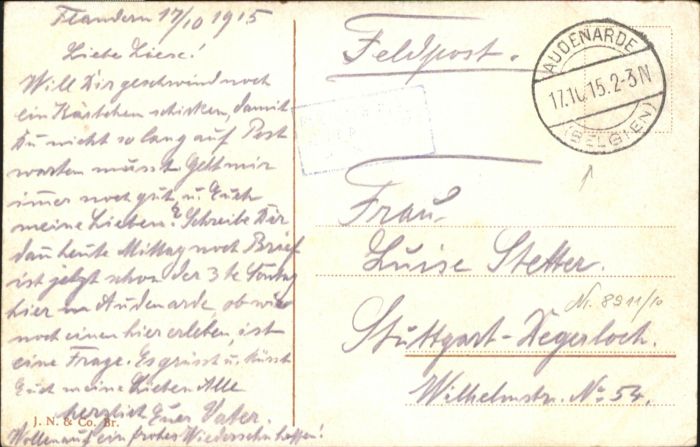 Flandern 17/10 1915
Liebe Liese!
Will Dir geschwind noch
ein Kästchen schicken, damit
Du nicht so lang auf Post
warten musst. Geht mir
immer noch gut, u. Euch
meine Lieben? Schreibe Dir
dan heute Mittag noch Brief
ist jetzt schon der 3te Sontag
hier in Audenarde, ob wir
noch einen hier erleben, ist
eine Frage. Es grüsst u. küsst
Euch meine Lieben Alle
herzlich Euer Vater.
Wollen auf ein frohes Wiedersehn hoffen!
J. N. & Co. Br.
Feldpost.
AUDENARDE
17.10.15.2-3N
(BELGIEN)
Frau
Luise Stetter.
Nr. 8911/10
Stuttgart-Degerloch.
Wilhelmstr. No 54.